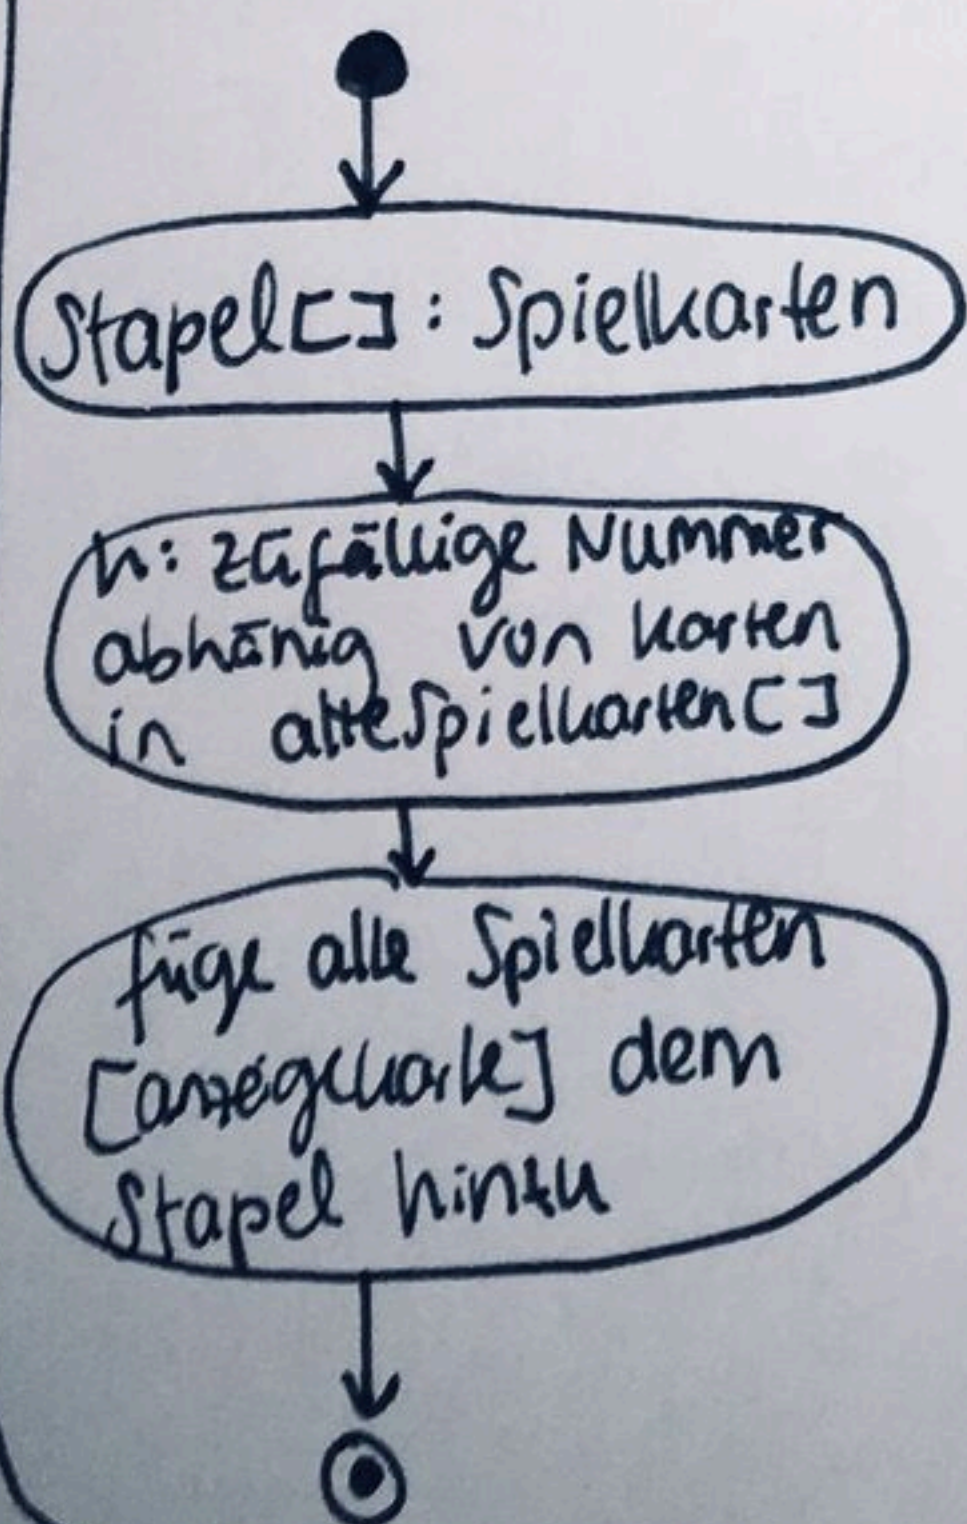 Stapel[] : Spielkarten
n: zufällige Nummer
abhänig von karten
in alteSpielkarten[]
füge alle Spielkarten
dem
Stapel hinzu